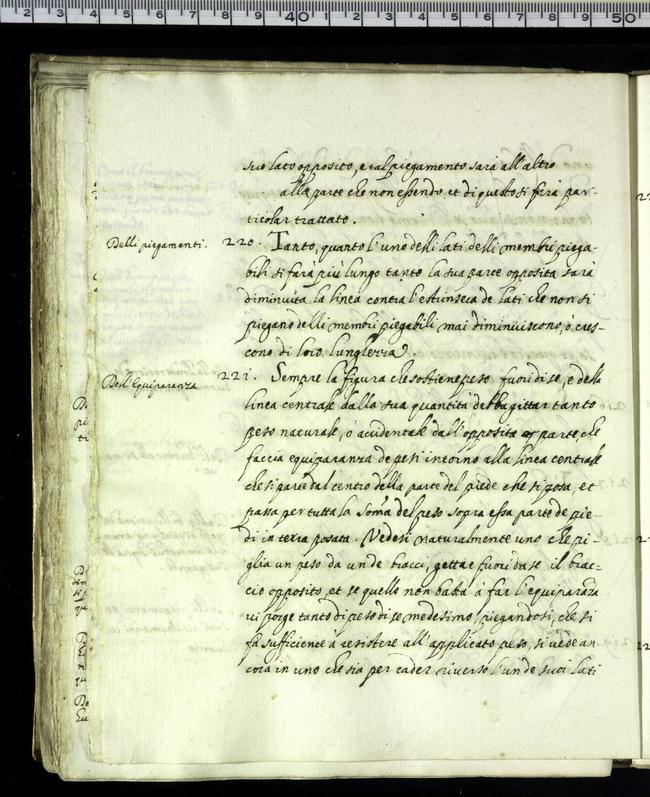 suo lato opposito, e tal piegamento sarà all'altro
alla parte che non essendo, et di questo si firà par-
ticolar trattato.
Delli piegamenti.
220. Tanto, quanto l'uno delli lati delli membri piega-
bili si farà più lungo tanto la sua parte opposita sarà
diminuita la linea contra l'estrinseca de lati che non si
piegano delli membri piegabili mai diminuiscono, ò cres-
cono di loro lunghezza.
Dell'Equiparanza
221. Sempre la figura che sostiene peso fuori di se, e della
linea centrale dalla sua quantità debba gittar tanto
peso naturale, ò accidentale dall'opposita parte, che
faccia equiparanza de pesi intorno alla linea centrale
che si parte dal centro della parte del piede che si posa, et
passa per tutta la soma del peso sopra essa parte de pie-
di in terra posata. Vedesi naturalmente uno che pi-
glia un peso da un de bracci, gettar fuori da se il brac-
cio opposito, et se quello non basta à far l'equiparanza
vi porge tanto di peso di se medesimo, piegandosi, che si
fa sufficiente à resistere all'applicato peso, si vede an
cora in uno che sia per cader riverso l'un de suoi lati